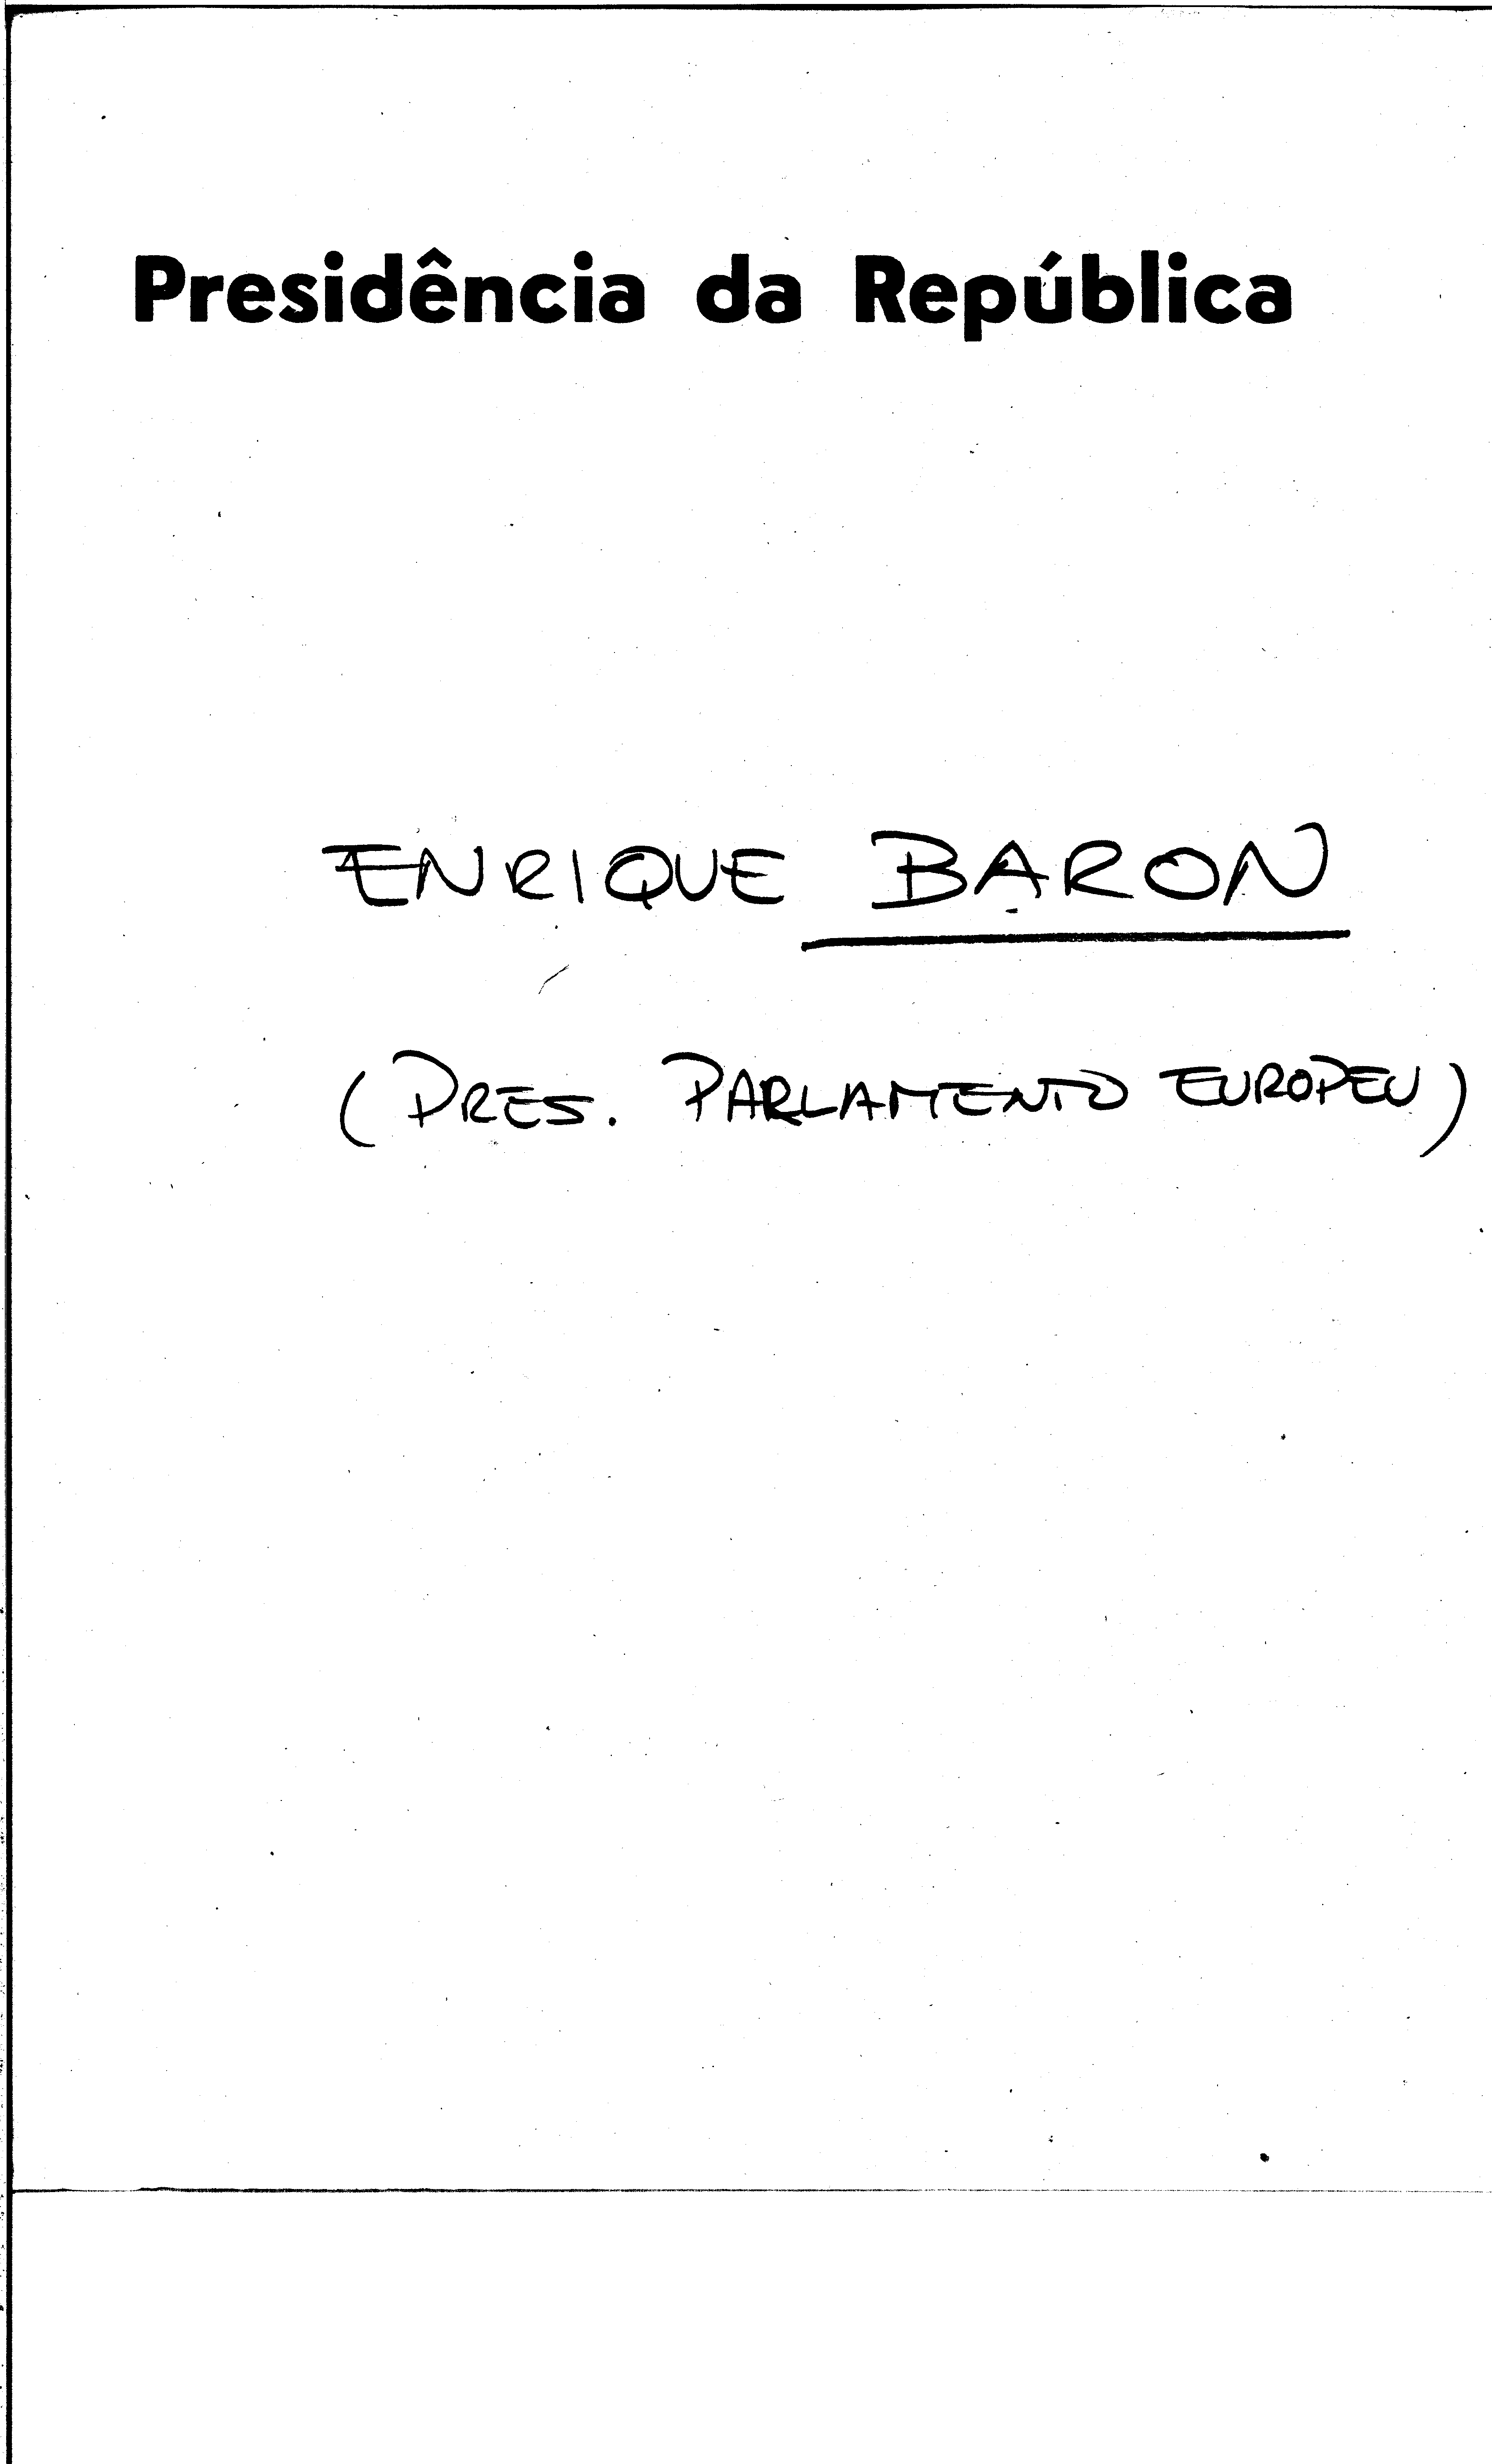 Presidência da República
ENRIQUE BARON
(PRES. PARLAMENTO EUROPEU)